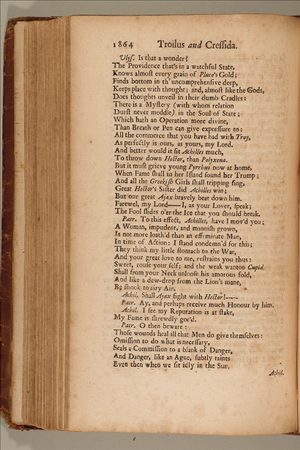 1864 Troilus and Cressida.
Ulyss. Is that a wonder?
The Providence that's in a watchful State,
Knows almost every grain of Pluto's Gold;
Finds bottom in th' uncomprehensive deep,
Keeps place with thought; and, almost like the Gods,
Does thoughts unveil in their dumb Cradles:
There is a Mystery (with whom relation
Durst never meddle) in the Soul of State;
Which hath an Operation more divine,
Than Breath or Pen can give expressure to:
All the commerce that you have had with Troy,
As perfectly is ours, as yours, my Lord.
And better would it fit Achilles much,
To throw down Hector, than Polyxena.
But it must grieve young Pyrrhus now at home,
When Fame shall in her Island sound her Trump;
And all the Greekish Girls shall tripping sing,
Great Hector's Sister did Achilles win;
But our great Ajax bravely beat down him.
Farewel, my Lord——I, as your Lover, speak;
The Fool slides o'er the Ice that you should break.
Patr. To this effect, Achilles, have I mov'd you;
A Woman, impudent, and mannish grown,
Is not more loath'd than an effeminate Man,
In time of Action: I stand condemn'd for this;
They think my little stomach to the War,
And your great love to me, restrains you thus:
Sweet, rouse your self; and the weak wanton Cupid
Shall from your Neck unloose his amorous fold,
And like a dew-drop from the Lion's mane,
Be shook to airy Air.
Achil. Shall Ajax fight with Hector?——
Patr. Ay, and perhaps receive much Honour by him.
Achil. I see my Reputation is at stake,
My Fame is shrewdly gor'd.
Patr. O then beware:
Those wounds heal ill that Men do give themselves:
Omission to do what is necessary,
Seals a Commission to a blank of Danger,
And Danger, like an Ague, subtly taints
Even then when we sit idly in the Sun.
Achil.